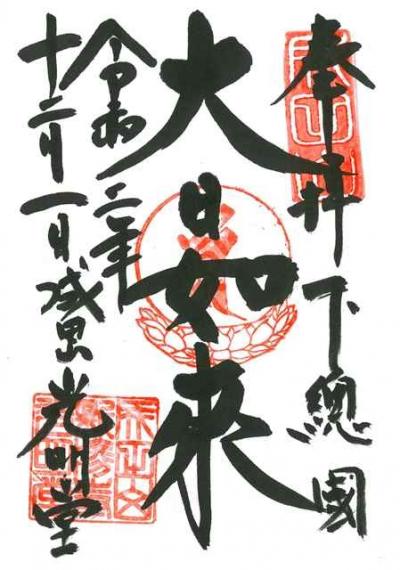 奉拝 下總國
大日如来
令和二年
十二月一日 成田山 光明堂